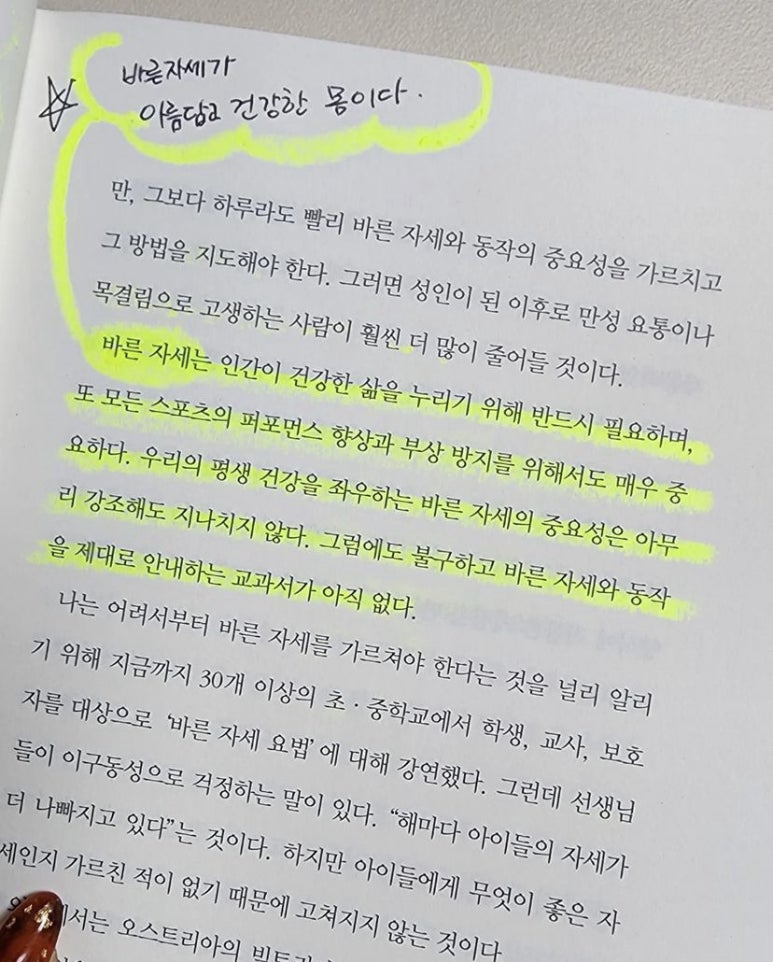 바른자세가
아름답고 건강한 몸이다.
만, 그보다 하루라도 빨리 바른 자세와 동작의 중요성을 가르치고
그 방법을 지도해야 한다. 그러면 성인이 된 이후로 만성 요통이나
목결림으로 고생하는 사람이 훨씬 더 많이 줄어들 것이다.
바른 자세는 인간이 건강한 삶을 누리기 위해 반드시 필요하며,
또 모든 스포츠의 퍼포먼스 향상과 부상 방지를 위해서도 매우 중
요하다. 우리의 평생 건강을 좌우하는 바른 자세의 중요성은 아무
리 강조해도 지나치지 않다. 그럼에도 불구하고 바른 자세와 동작
을 제대로 안내하는 교과서가 아직 없다.
나는 어려서부터 바른 자세를 가르쳐야 한다는 것을 널리 알리
기 위해 지금까지 30개 이상의 초·중학교에서 학생, 교사, 보호
자를 대상으로 ‘바른 자세 요법’에 대해 강연했다. 그런데 선생님
들이 이구동성으로 걱정하는 말이 있다. “해마다 아이들의 자세가
더 나빠지고 있다”는 것이다. 하지만 아이들에게 무엇이 좋은 자
세인지 가르친 적이 없기 때문에 고쳐지지 않는 것이다
서는 오스트리아의